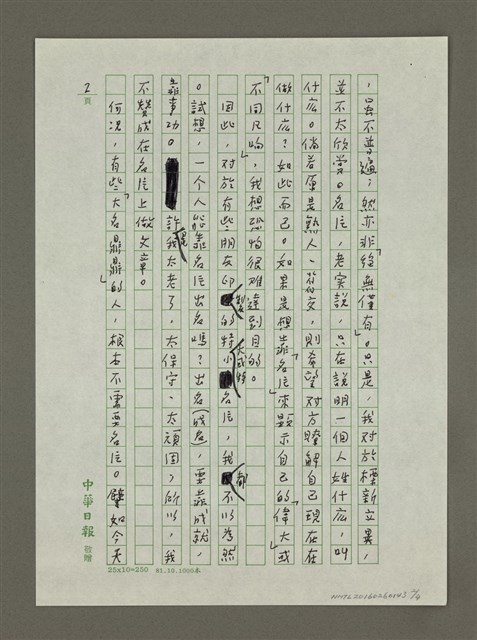 ，虽不普遍；然亦非「絕無僅有」。只是，我对於標新立異，
並不太欣赏。名片，老实說，只在說明一個人姓什庅，叫
什庅。倘若原是熟人、筍交，則希望对方瞭解自己現在在
做什庅？如此而已。如果是想靠「名片」來顯示自己的「偉大或
不同凡响」，我想恐怕很难達到目的。
因此，对於有些朋友印製的特小、大或特名片，我都不以為然
。試想，一个人能靠名片出名嗎？出名（成名），要靠成就，
靠事功。許是我太老了，太保守、太頑固；所以，我
不贊成在名片上做文章。
何况，有些「大名鼎鼎」的人，根本不需要名片。譬如今天
2
頁
中華日報 敬贈
25x10=250 81.10.1000本